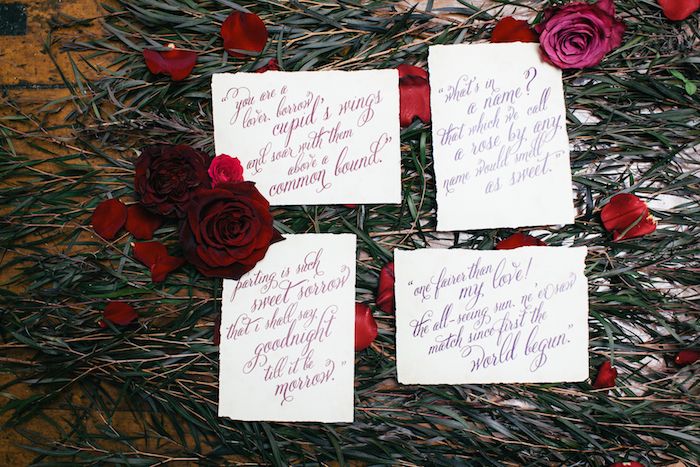 “you are a
lover. borrow
cupid's wings
and soar with them
above a
common bound.”
“what's in
a name?
that which we call
a rose by any
name would smell
as sweet.”
parting is such
sweet sorrow
that i shall say
goodnight
till it be
morrow.”
“one fairer than
my love!
the all-seeing sun. ne'er saw
her match since first the
world begun.”